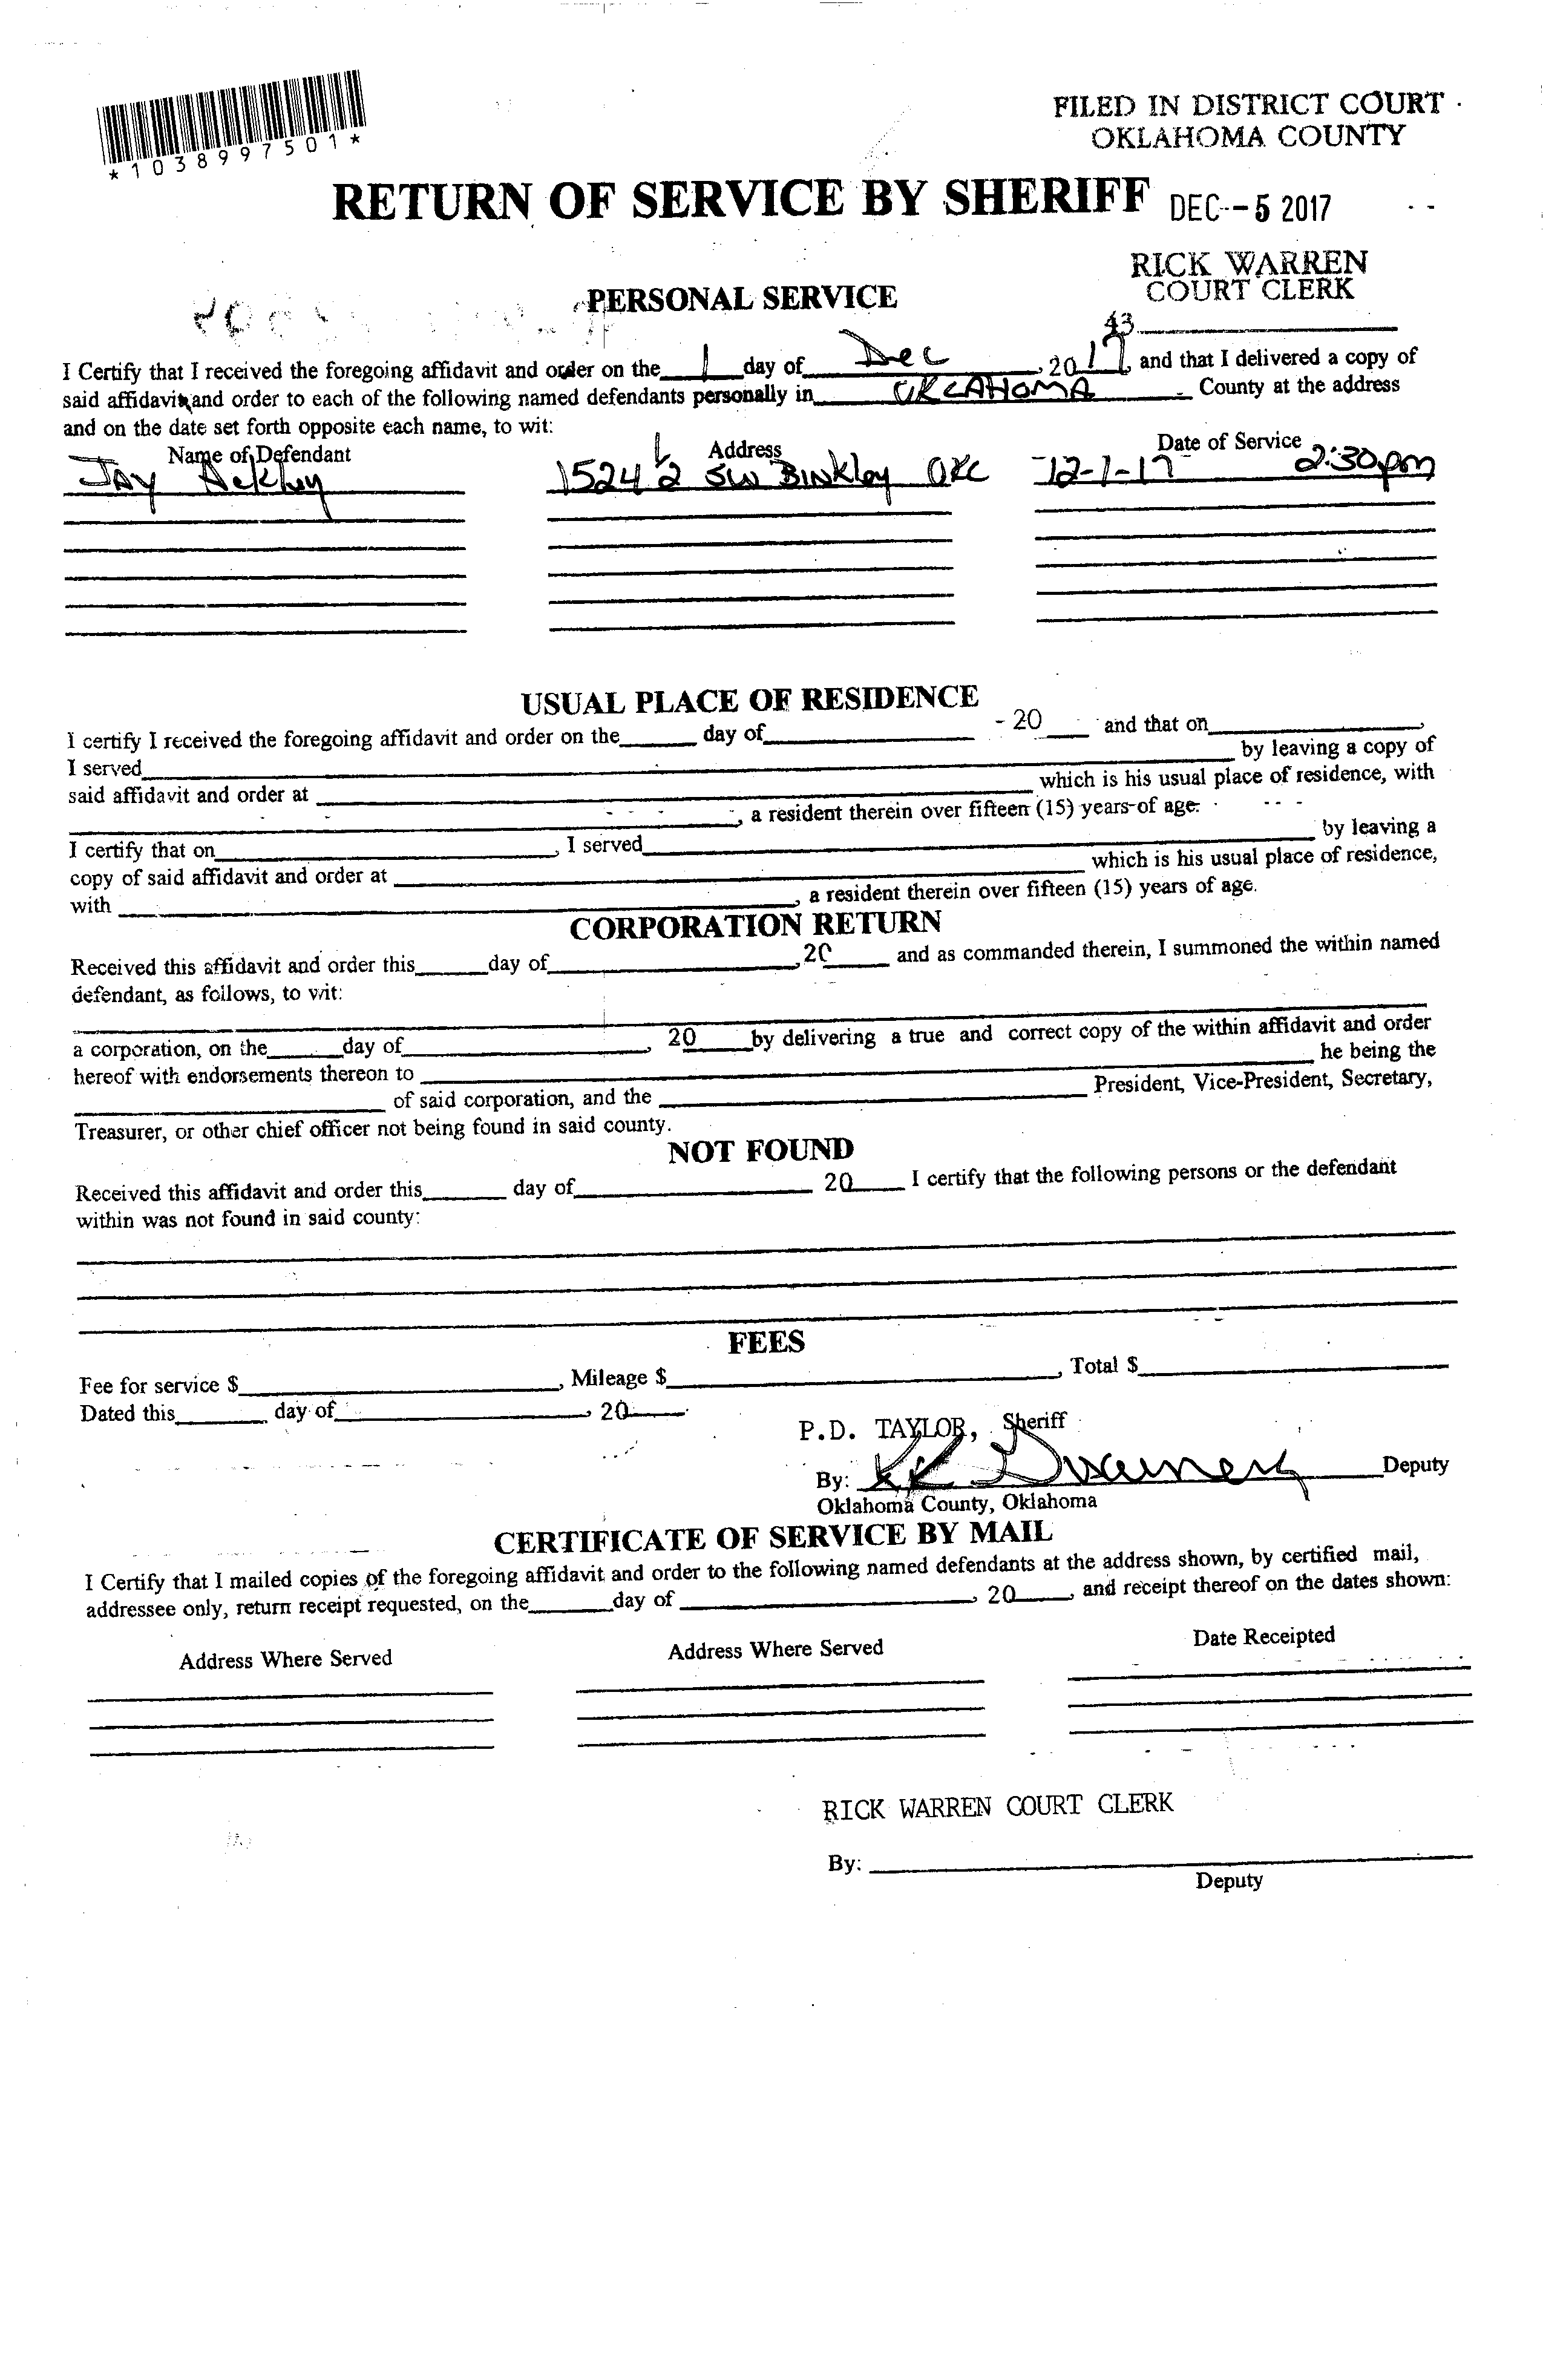 *1038997501*
FILED IN DISTRICT COURT
OKLAHOMA COUNTY
RETURN OF SERVICE BY SHERIFF DEC -5 2017
RICK WARREN
COURT CLERK
PERSONAL SERVICE
43
I Certify that I received the foregoing affidavit and order on the 1 day of Dec, 2017, and that I delivered a copy of
said affidavit and order to each of the following named defendants personally in OKLAHOMA County at the address
and on the date set forth opposite each name, to wit:
Name of Defendant Address Date of Service
JAY Ackley 1524 1/2 SW BINKley OKC 12-1-17 2:30pm
USUAL PLACE OF RESIDENCE
I certify I received the foregoing affidavit and order on the ______ day of ______ 20___ and that on ______,
I served ______ by leaving a copy of
said affidavit and order at ______ which is his usual place of residence, with
______, a resident therein over fifteen (15) years of age.
I certify that on ______, I served ______ by leaving a
copy of said affidavit and order at ______ which is his usual place of residence,
with ______, a resident therein over fifteen (15) years of age.
CORPORATION RETURN
Received this affidavit and order this ______ day of ______, 20____ and as commanded therein, I summoned the within named
defendant, as follows, to wit:
a corporation, on the ______ day of ______, 20____ by delivering a true and correct copy of the within affidavit and order
hereof with endorsements thereon to ______ he being the
______ of said corporation, and the ______ President, Vice-President, Secretary,
Treasurer, or other chief officer not being found in said county.
NOT FOUND
Received this affidavit and order this ______ day of ______ 20____ I certify that the following persons or the defendant
within was not found in said county:
FEES
Fee for service $______, Mileage $______, Total $______
Dated this ______ day of ______, 20____
P.D. TAYLOR, Sheriff
By: ______ Deputy
Oklahoma County, Oklahoma
CERTIFICATE OF SERVICE BY MAIL
I Certify that I mailed copies of the foregoing affidavit and order to the following named defendants at the address shown, by certified mail,
addressee only, return receipt requested, on the ______ day of ______, 20____, and receipt thereof on the dates shown:
Address Where Served Address Where Served Date Receipted
RICK WARREN COURT CLERK
By: ______
Deputy